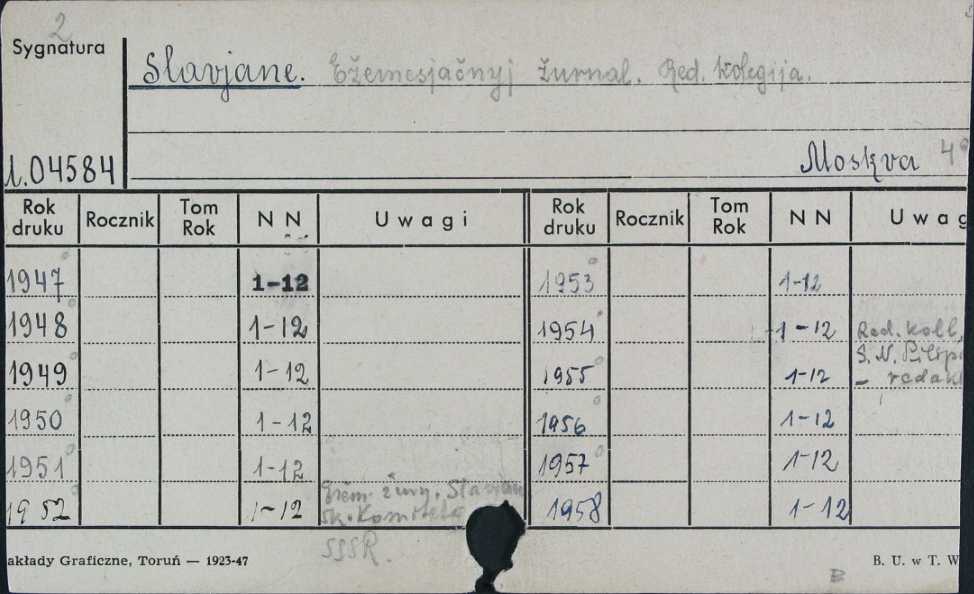 2
Sygnatura
Slavjane. Ežemesjačnyj žurnal. Red. Kolegija.
Moskva 4°
04584
Rok druku Rocznik Tom Rok N N Uwagi Rok druku Rocznik Tom Rok N N Uwag
1947 1-12 1953 1-12
1948 1-12 1954 1-12 Red. koll.
1949 1-12 1955 1-12 S. N.
- redak
1950 1-12 1956 1-12
1951 1-12 1957 1-12
1952 1-12 1958 1-12
žurn. Slavjan
sk. Komiteta
SSSR.
akłady Graficzne, Toruń — 1923-47 B. U. w T. W
B